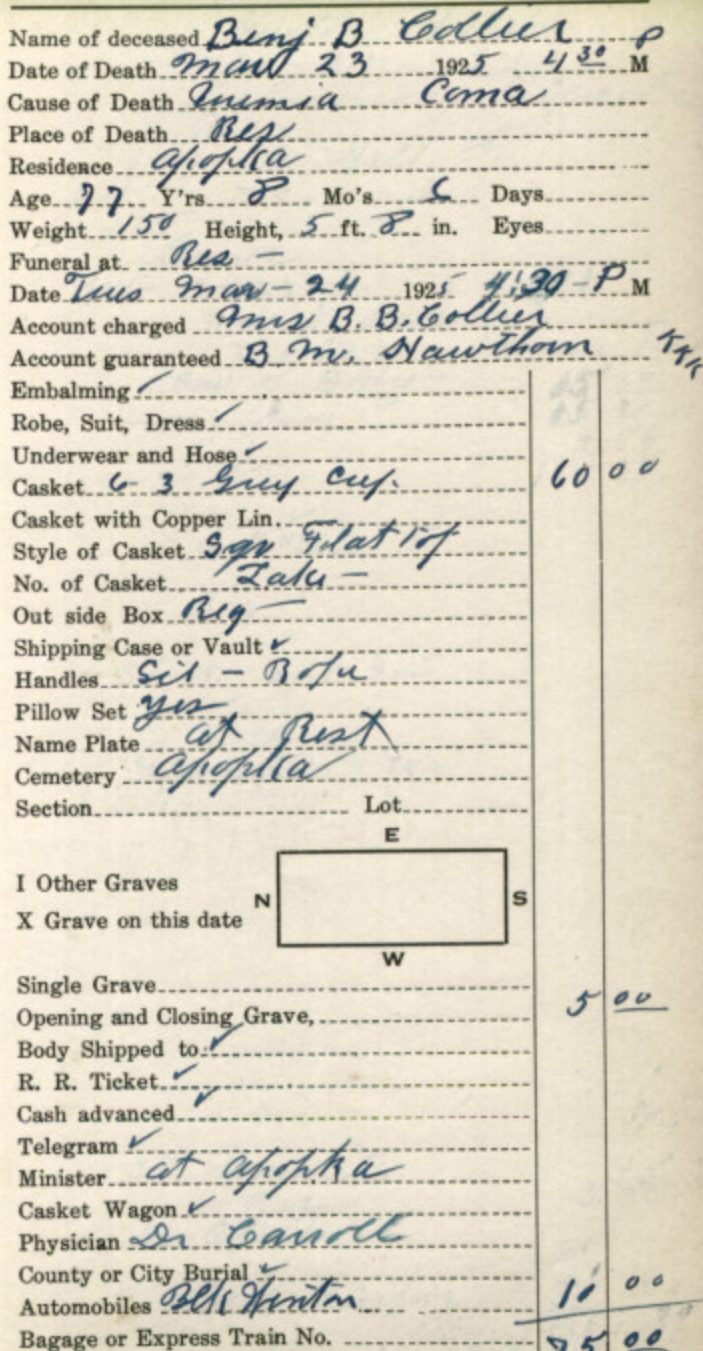 Name of deceased Benj B Collier P
Date of Death Mar 23 1925 4 30 M
Cause of Death Uremia Coma
Place of Death Res
Residence Apopka
Age 77 Y'rs 8 Mo's 6 Days
Weight 150 Height, 5 ft. 8 in. Eyes
Funeral at Res -
Date Tues Mar - 24 1925 4:30 - P M
Account charged Mrs B. B. Collier
Account guaranteed B. M. Hawthorn KKK
Embalming ✓
Robe, Suit, Dress ✓
Underwear and Hose ✓
Casket 6-3 Grey 60 00
Casket with Copper Lin.
Style of Casket Sqr Flat Top
No. of Casket
Out side Box Reg -
Shipping Case or Vault ✓
Handles Sil -
Pillow Set Yes
Name Plate At Rest
Cemetery Apopka
Section Lot
E
I Other Graves
N S
X Grave on this date
W
Single Grave
Opening and Closing Grave, 5 00
Body Shipped to ✓
R. R. Ticket ✓
Cash advanced ✓
Telegram ✓
Minister at Apopka
Casket Wagon ✓
Physician Dr Carroll
County or City Burial ✓
Automobiles Blk 10 00
Bagage or Express Train No. 75 00